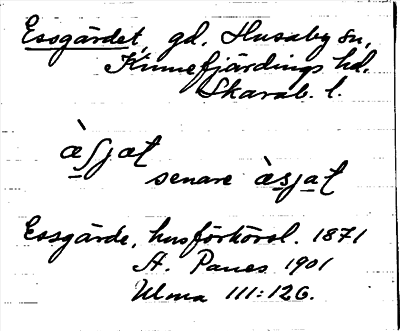 Essgärdet, gd. Husaby sn,
Kinnefjärdings hd.
Skarab. l.
æ̀ʃjæt
senare æ̀sjat
Essgärde, husförhörsl. 1871
A. Panes 1901
Ulma 111:126.